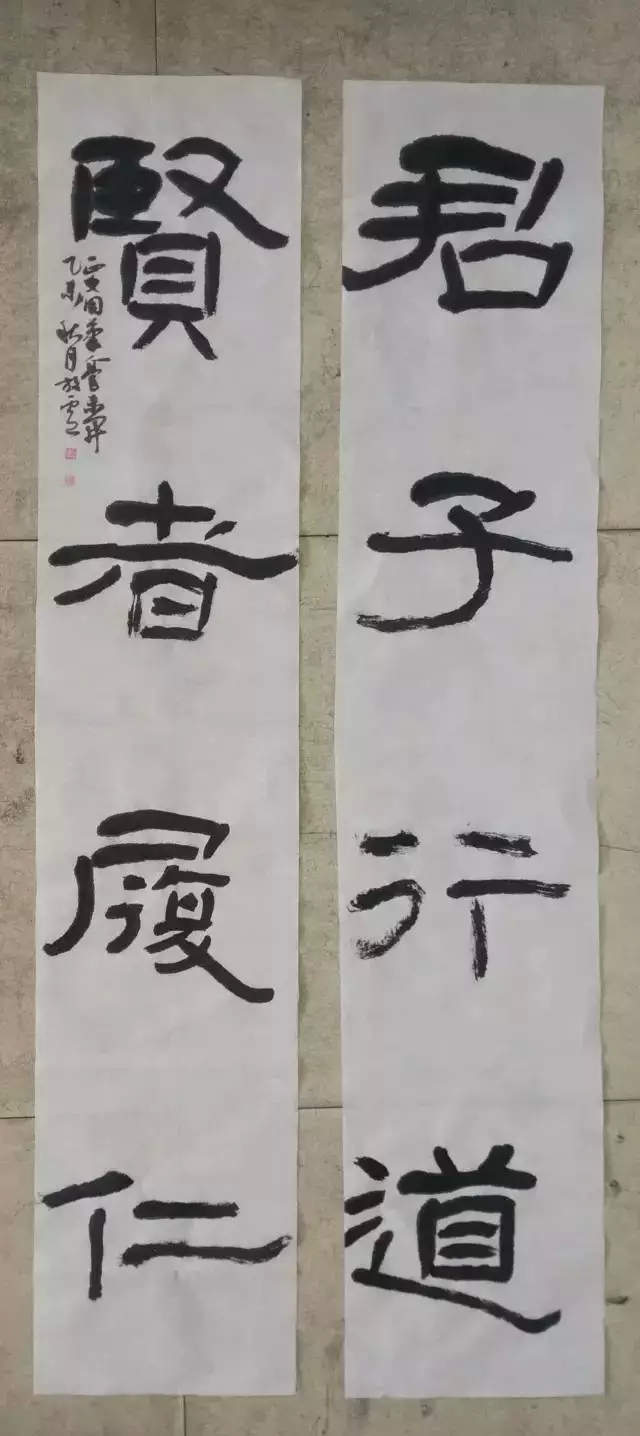 君子行道
賢者履仁
乙未秋月